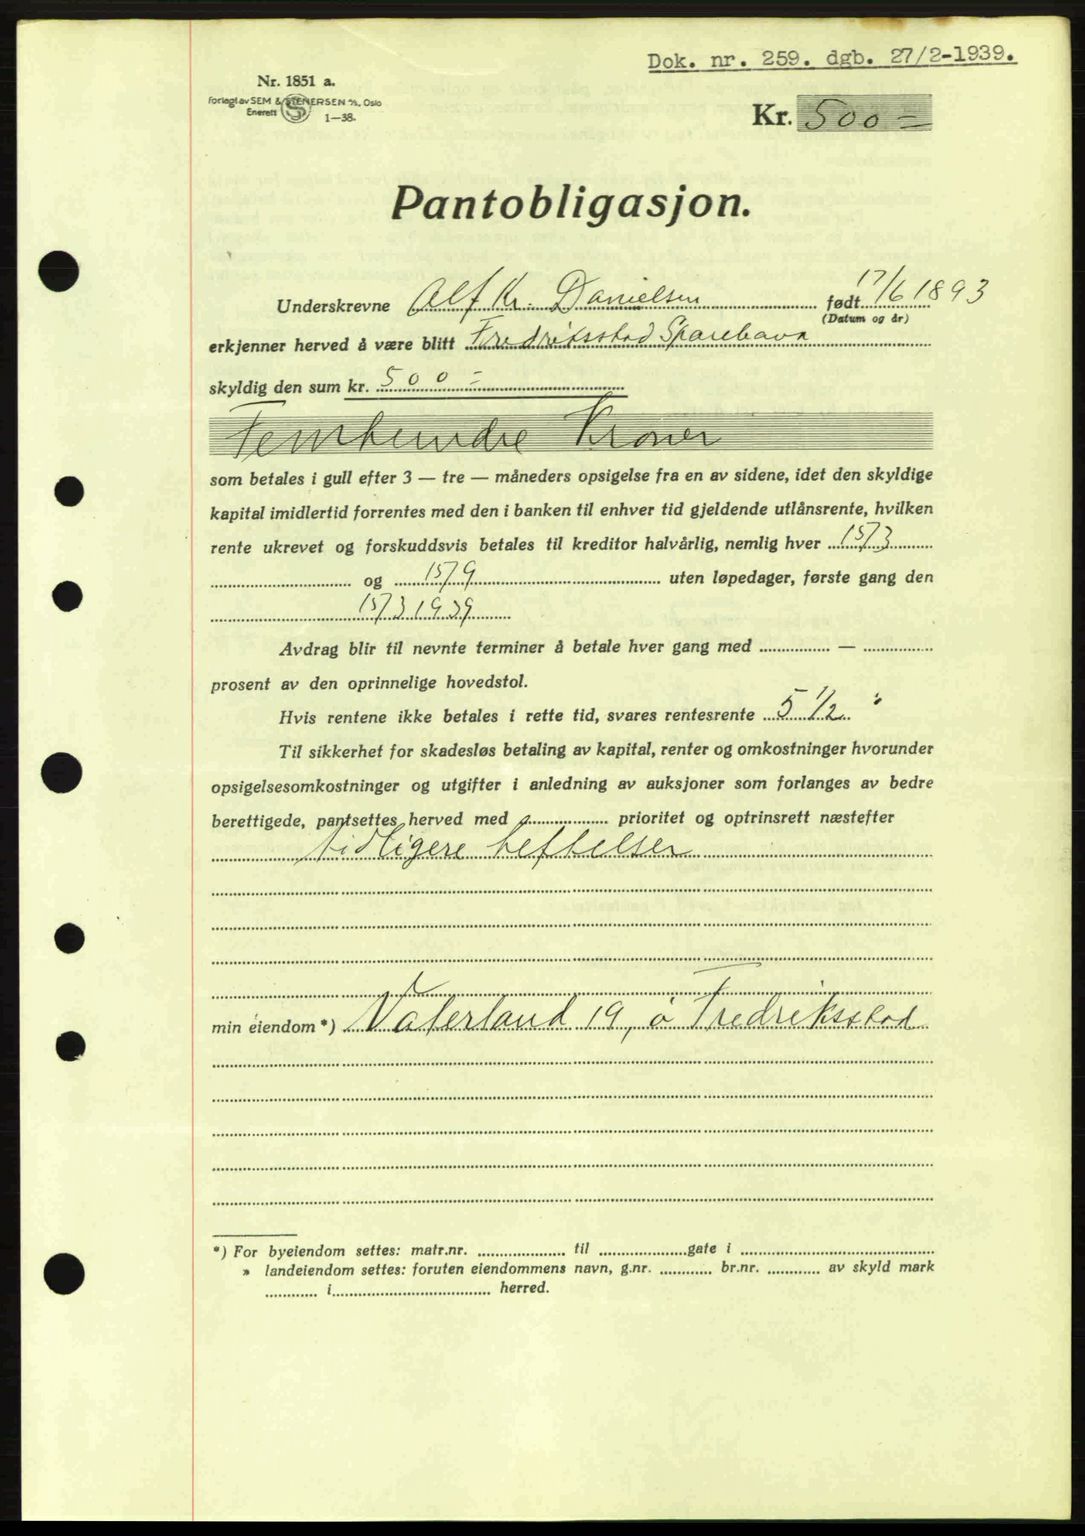 Dok. nr. 259. dgb. 27/2-1939.
Nr. 1851 a.
Forlagt av SEM & STENERSEN A/S, Oslo
Enerett
1—38.
Kr. 500 =
Pantobligasjon.
Underskrevne Alf Kr. Danielsen født 17/6 1893
(Datum og år)
erkjenner herved å være blitt Fredriksstad Sparebank
skyldig den sum kr. 500 =
Femhundre Kroner
som betales i gull efter 3 — tre — måneders opsigelse fra en av sidene, idet den skyldige
kapital imidlertid forrentes med den i banken til enhver tid gjeldende utlånsrente, hvilken
rente ukrevet og forskuddsvis betales til kreditor halvårlig, nemlig hver 15/3
og 15/9 uten løpedager, første gang den
15/3 1939
Avdrag blir til nevnte terminer å betale hver gang med —
prosent av den oprinnelige hovedstol.
Hvis rentene ikke betales i rette tid, svares rentesrente 5 1/2 %
Til sikkerhet for skadesløs betaling av kapital, renter og omkostninger hvorunder
opsigelsesomkostninger og utgifter i anledning av auksjoner som forlanges av bedre
berettigede, pantsettes herved med prioritet og optrinsrett næstefter
tidligere heftelser
min eiendom *) Vaterland 19, ö Fredriksstad
*) For byeiendom settes: matr.nr. til gate i
» landeiendom settes: foruten eiendommens navn, g.nr. br.nr. av skyld mark
i herred.